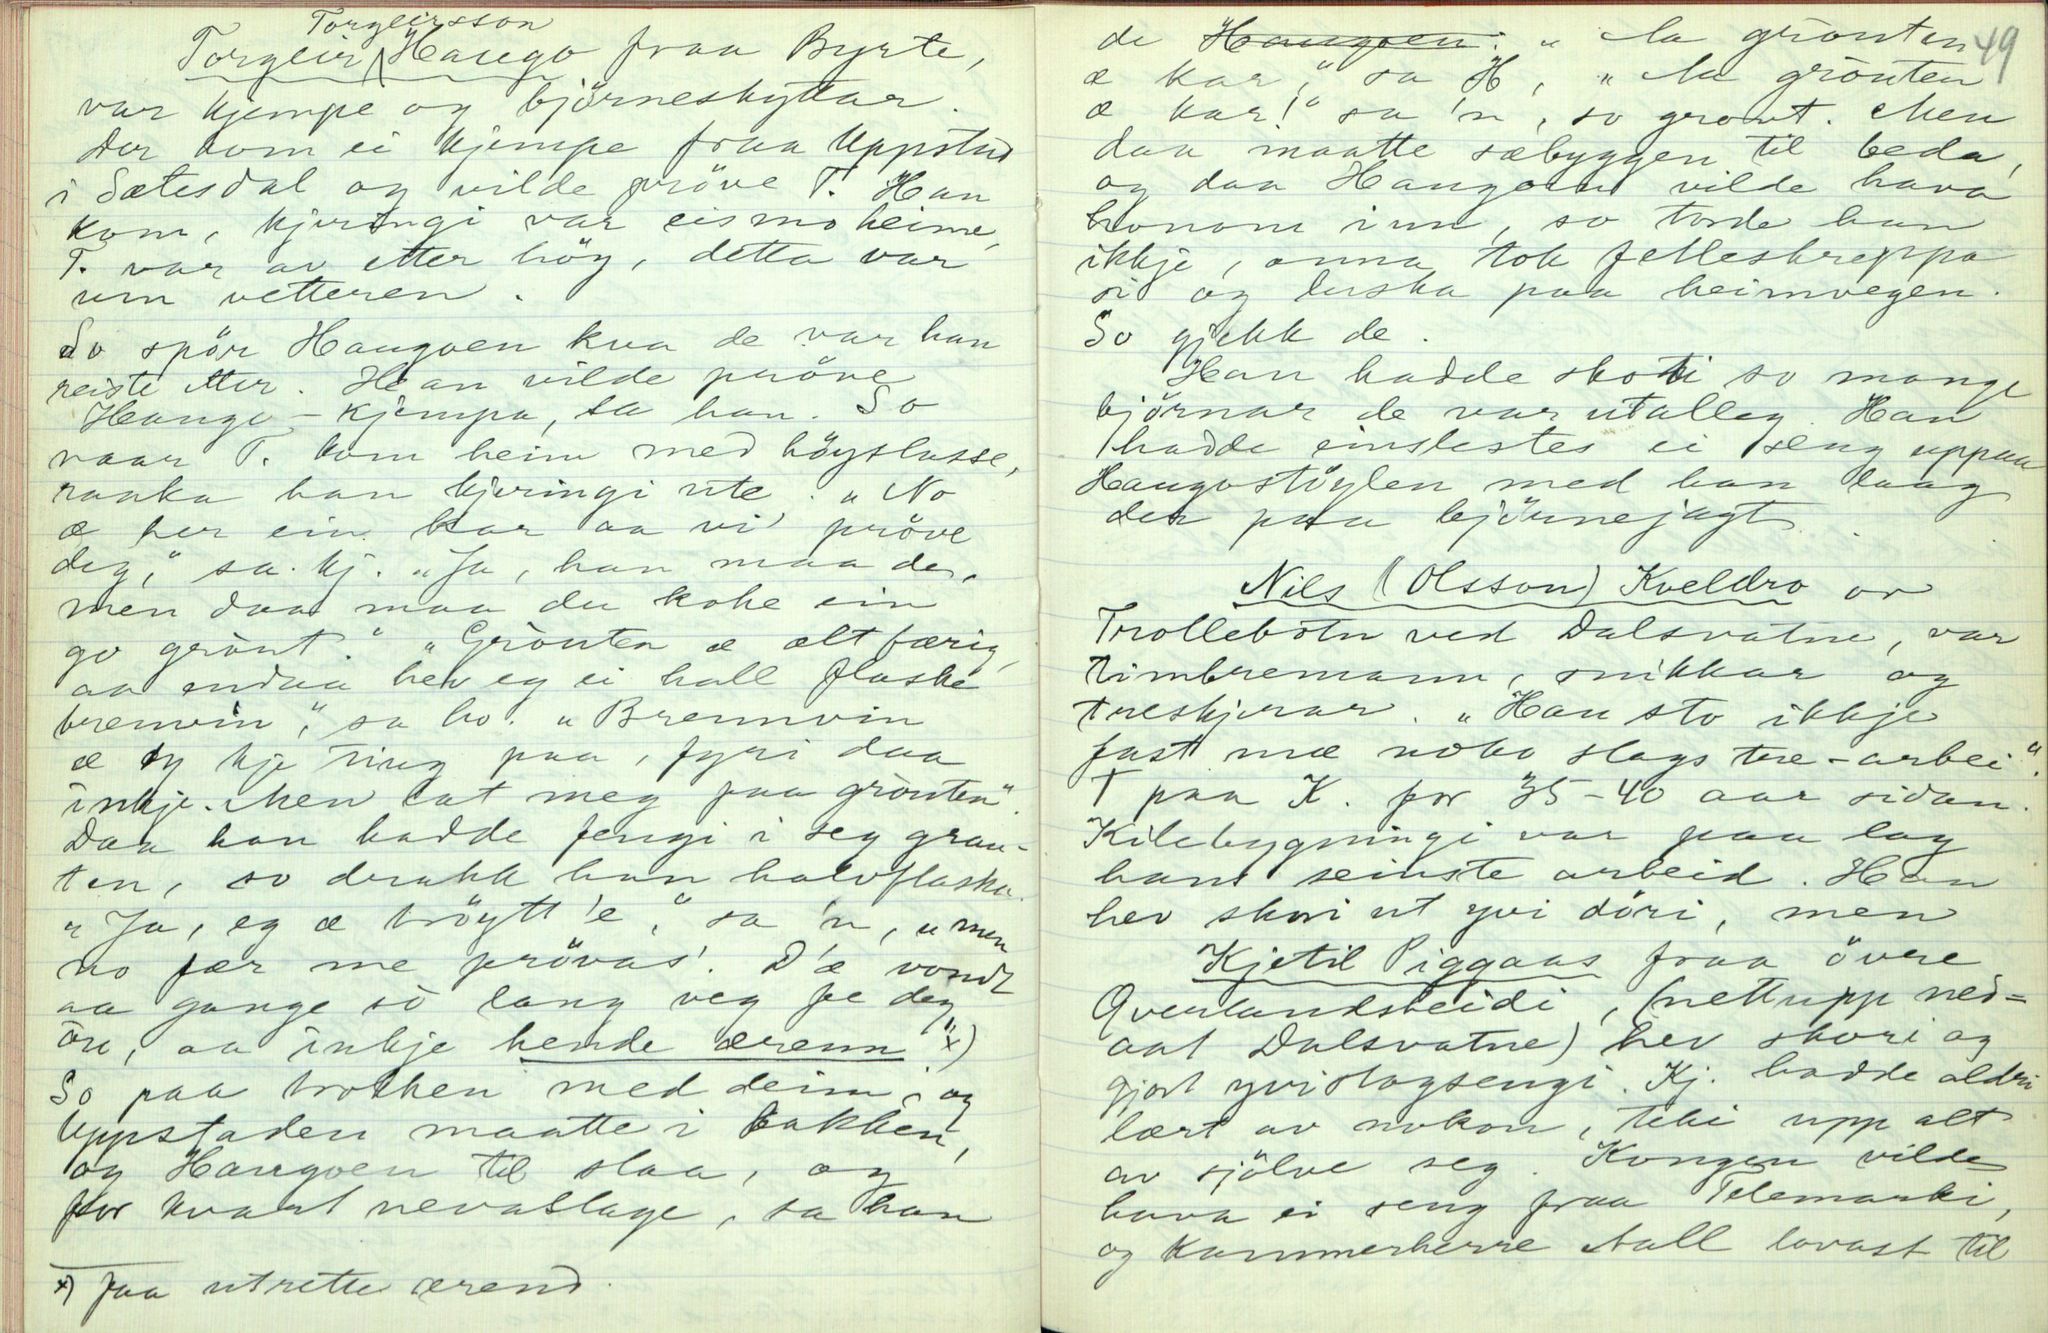 Torgeirsson
Torgeir Haugo fraa Byrte,
var kjempe og björneskyttar.
Der kom ei kjempe fraa Uppstad
i Sætesdal og vilde pröve T. Han
kom, kjeringi var eismo heime,
T. var av etter höy, detta var
um vetteren.
So spör Haugoen kva de var han
reiste etter. Han vilde pröve
Hauge-kjempa, sa han. So
naar T. kom heim med höyslasse,
raaka han kjeringi ute. „No
æ her ein kar aa vi' pröve
deg," sa kj. „Ja, han maa de,
men daa maa du koke ein
go grònt." „Grònten æ alt færig,
aa endaa hev eg ei hall flaske
brenvin," sa ho. „Brennvin
æ kje ting paa, fyri daa
inkje. Men lat meg faa grònten"
Daa han hadde fengi i seg grau-
ten, so drakk han halvflaska.
„Ja, eg æ tröytt 'e," sa 'n, „men
no fær me prövas'. D'æ vondt
aa gange sò lang veg fe deg
òu, aa inkje hende ærenn" x)
So paa trokken med deim, og
Uppstaden maatte i bakken,
og Haugoen til slaa, og
for kvart nevaslage, sa han
x) faa utrette ærend.
49
de Haugoen: „Aa grònten
æ kar," sa H, „Aa grònten
æ kar!" sa 'n, so gront. Men
daa maatte sæbyggen til beda,
og daa Haugoen vilde hava
honom inn, so torde han
ikkje, onna tok felleskreppa
si og luska paa heimvegen.
So gjekk de.
Han hadde skoti so mange
björnar de var utalleg. Han
hadde einslestes ei seng uppaa
Haugostöylen med han laag
der paa björnejagt.
Nils (Olsson) Kveldro or
Trollebotn ved Dalsvatne, var
timbremann, snikkar og
treskjerar. „Han sto ikkje
fast mæ noko slags tre-arbei".
† paa K. for 35-40 aar sidan.
Kilebygningi var paa lag
hans seinste arbeid. Han
hev skori ut yvi döri, men
Kjetil Piggaas fraa övre
Overlandsheidi, (nettupp ned-
aat Dalsvatne) hev skori og
gjort yvislagsengi. Kj. hadde aldri
lært av nokon, teki upp alt
av sjölve seg. Kongen vilde
hava ei seng fraa Telemarki,
og Kammerherre Aall lovast til